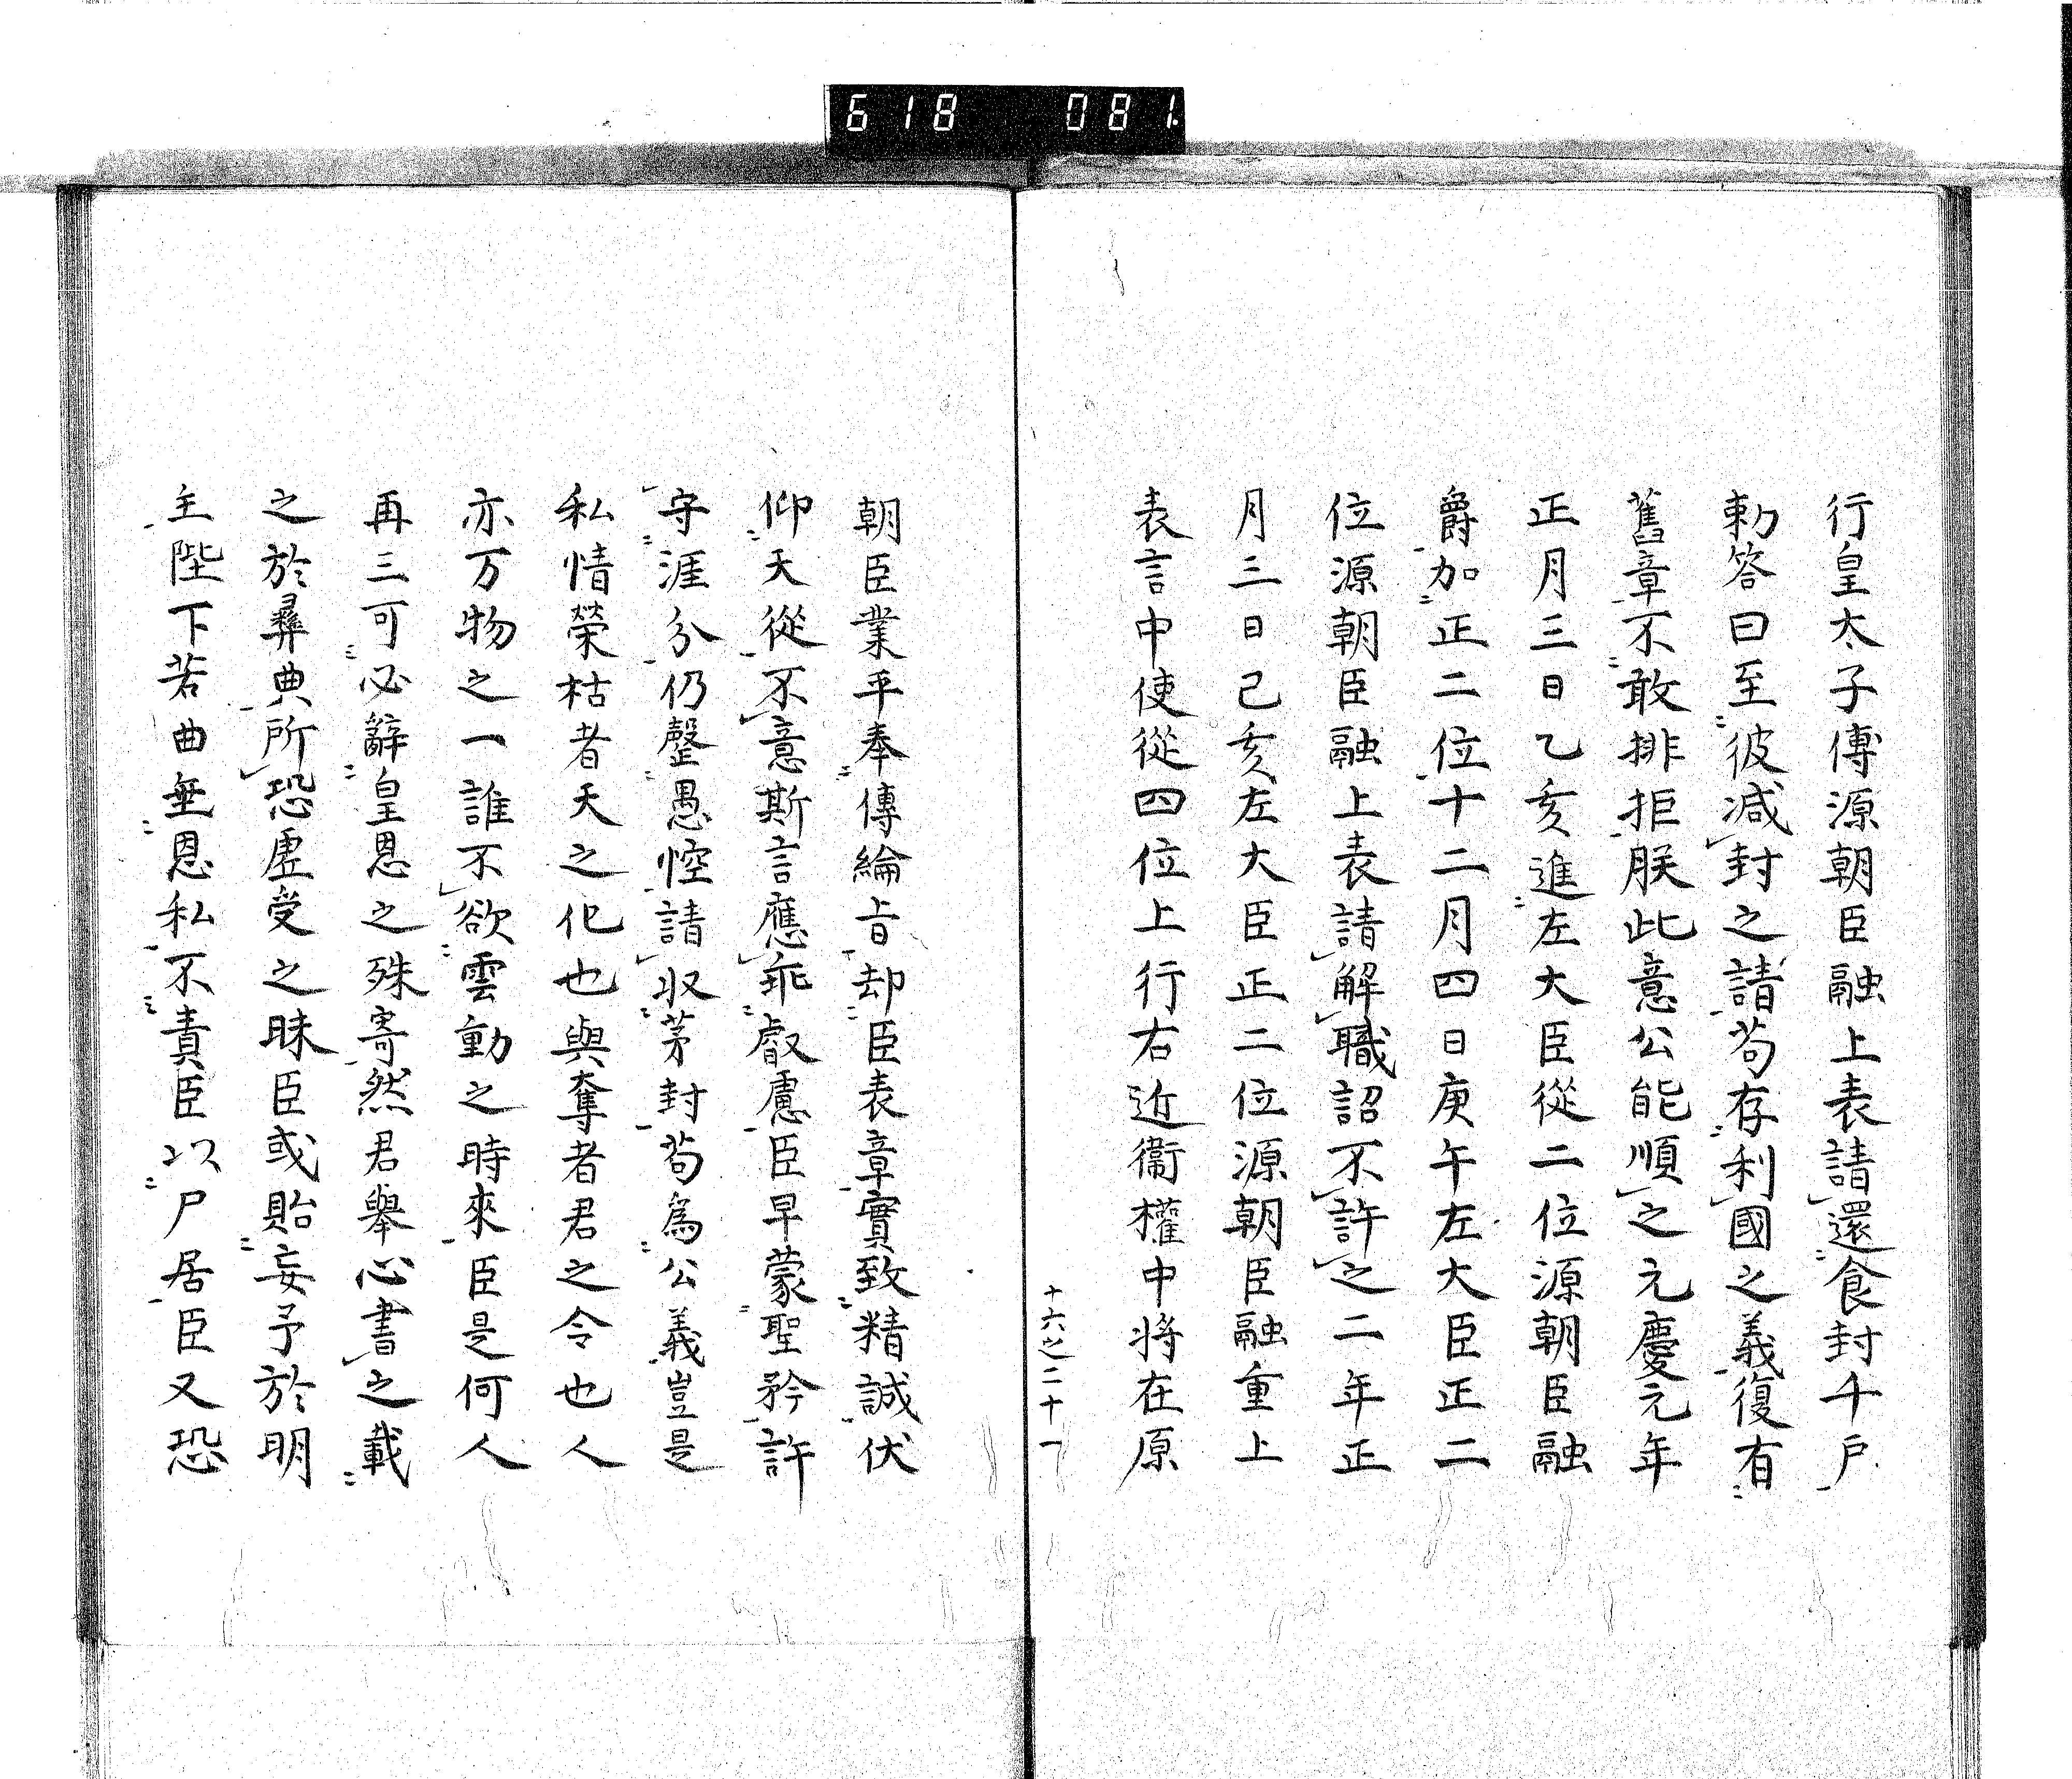 618 081.
行皇太子傅源朝臣融上表請還食封千戸
勅答曰至彼减封之請苟存利國之義復有
舊章不敢排拒朕此意公能順之元慶元年
正月三日乙亥進左大臣從二位源朝臣融
爵加正二位十二月四日庚午左大臣正二
位源朝臣融上表請解職詔不許之二年正
月三日己亥左大臣正二位源朝臣融重上
表言中使從四位上行右近衞權中将在原
十六之二十一
朝臣業平奉傳綸旨却臣表章實致精誠伏
仰天從不意斯言應乖叡慮臣早蒙聖矜許
守涯分仍罄愚悾請収茅封苟為公義豈是
私情榮枯者天之化也與奪者君之令也人
亦万物之一誰不欲雲動之時來臣是何人
再三可必辭皇恩之殊寄然君舉心書之載
之於彛典所恐虚受之昧臣或貽妄予於明
主陛下若曲垂恩私不責臣以尸居臣又恐